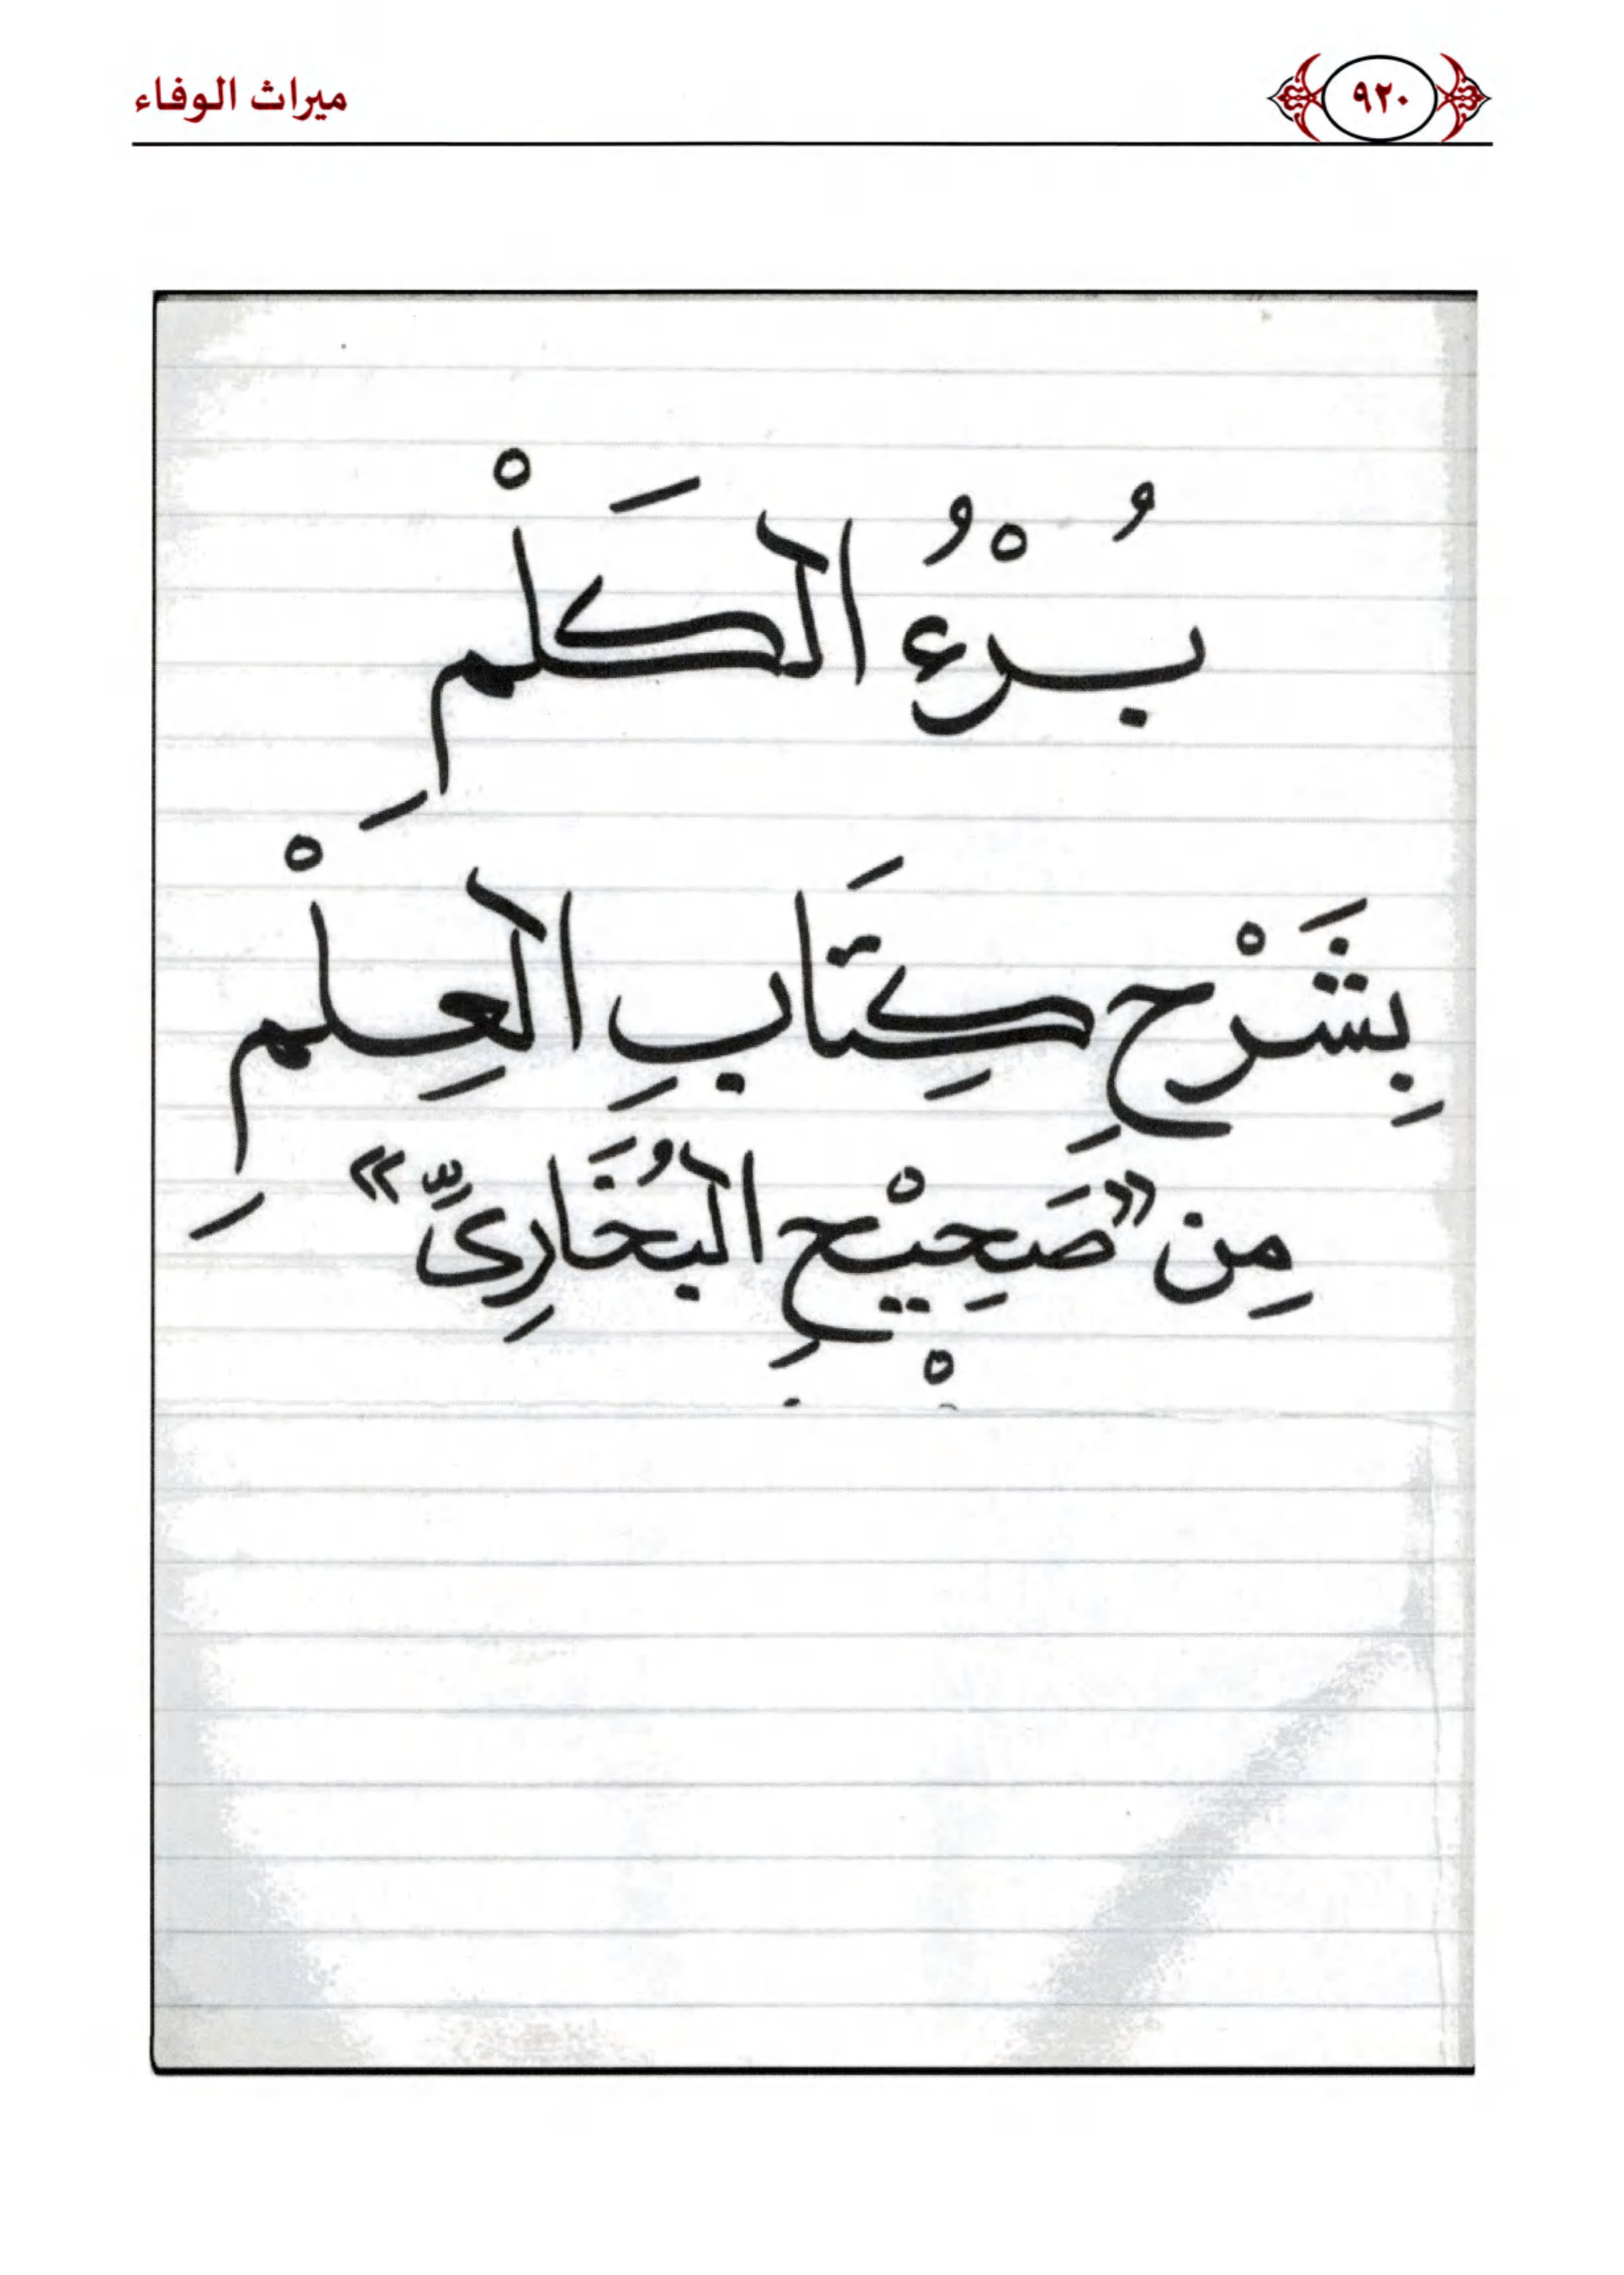 ٩٢٠
ميراث الوفاء
بُرْءُ الكَلْمِ
بِشَرْحِ كِتَابِ العِلْمِ
مِن «صَحِيْحِ البُخَارِيِّ»